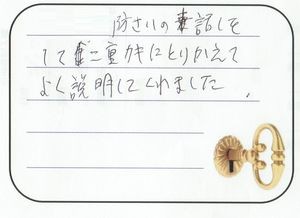 防さいの話しを
して二重カギにとりかえて
よく説明してくれました。